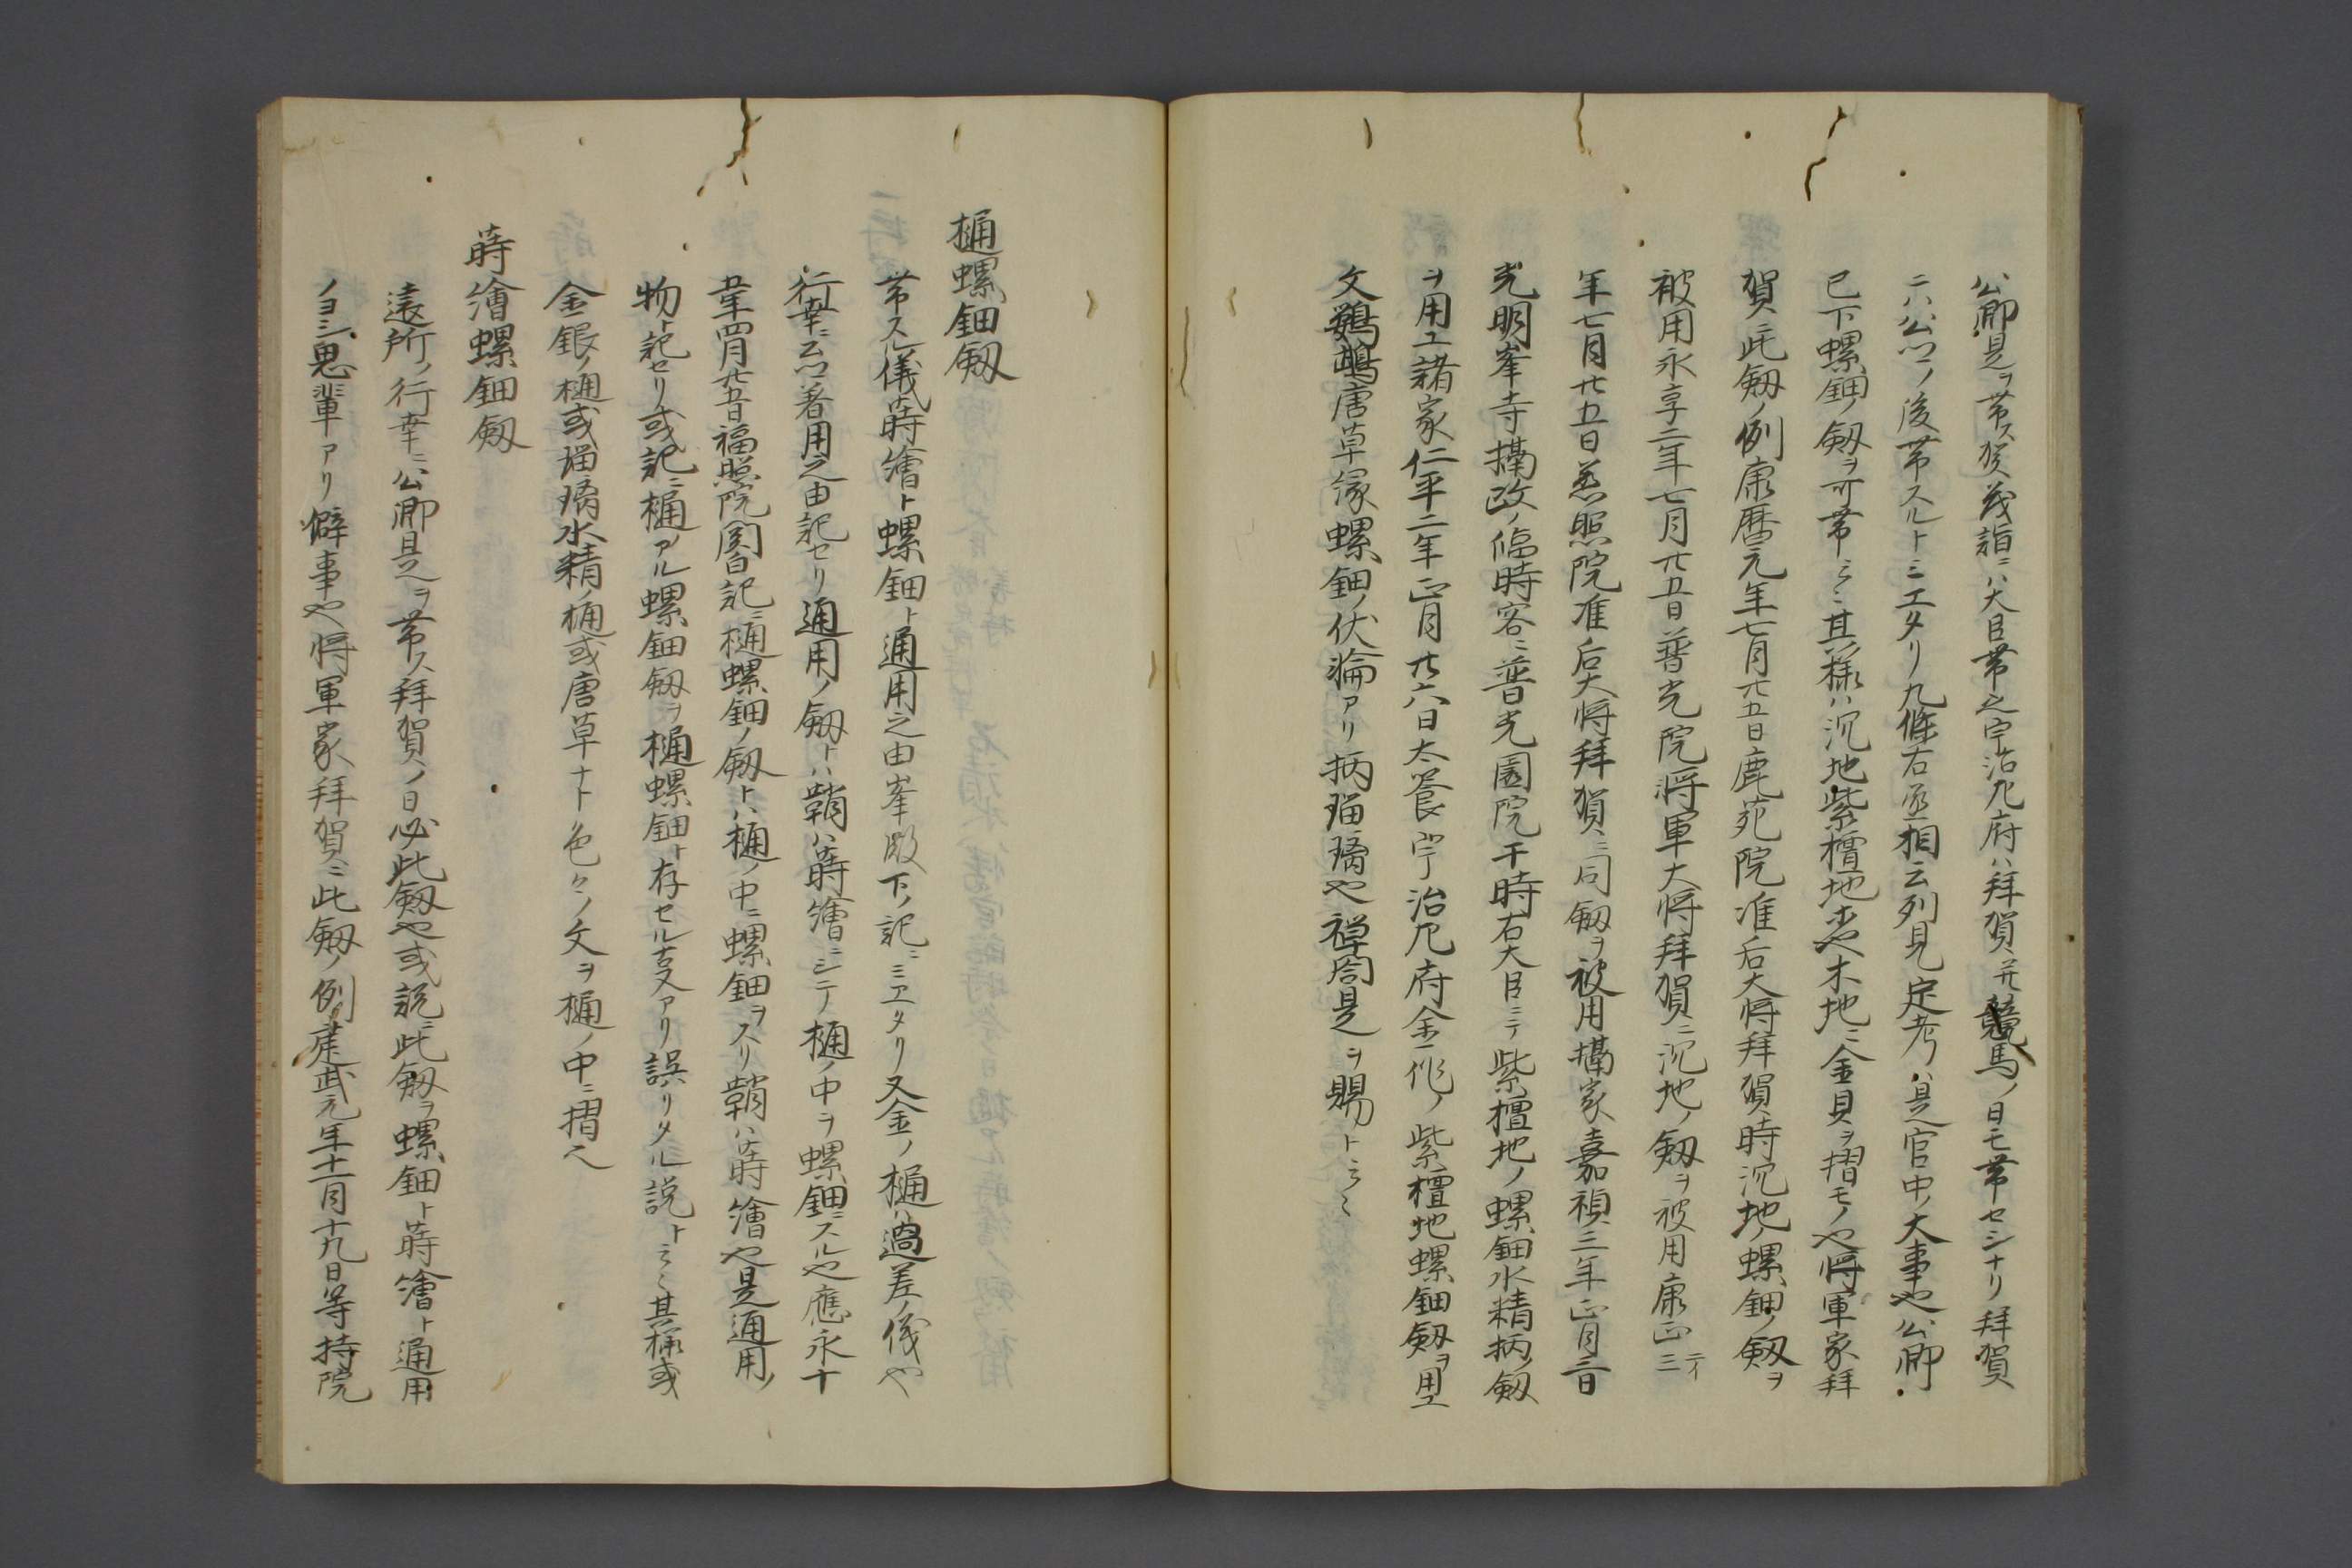 公卿是ヲ帯ス賀茂詣ニハ大臣帯之宇治左府ハ拝賀并競馬ノ日モ帯セシナリ拝賀
ニハ公卿ノ後帯スルトミエタリ九條右丞相云列見定考ハ是官中ノ大事也公卿
已下螺鈿ノ釼ヲ可帯云々其様ハ沉地紫檀地也木地ニ金貝ヲ摺モノ也将軍家拝
賀ニ此釼ノ例康暦元年七月廿五日鹿苑院准后大将拝賀時沉地ノ螺鈿ノ釼ヲ
被用永享二年七月廿五日普光院将軍大将拝賀ニ沉地ノ釼ヲ被用康正三二イ
年七月廿五日慈照院准后大将拝賀ニ同釼ヲ被用攝家嘉禎三年正月三日
光明峯寺攝政ノ臨時客ニ普光園院于時右大臣ニテ紫檀地ノ螺鈿水精柄ノ釼
ヲ用エ諸家仁平二年正月廿六日大饗ニ宇治左府金作ノ紫檀地螺鈿釼ヲ用エ
文鸚鵡唐草縁螺鈿ノ伏輪アリ柄瑠璃也禅閤是ヲ賜ト云々
樋螺鈿釼
帯スル儀蒔繪ト螺鈿ト通用之由峯殿下ノ記ニミエタリ又金ノ樋ハ過差ノ儀也
行幸ニ公卿著用之由記セリ通用ノ釼トハ鞘ハ蒔繪ニシテ樋ノ中ヲ螺鈿ニスル也應永十
五年四月廿五日福照院関白記ニ樋螺鈿ノ釼トハ樋ノ中ニ螺鈿ヲスリ鞘ハ蒔繪也是通用ノ
物ト記セリ或記ニ樋アル螺鈿釼ヲ樋螺鈿ト存セル事アリ誤リタル説ト云々其樋或
金銀ノ樋或瑠璃水精ノ樋或唐草ナト色々ノ文ヲ樋ノ中ニ摺之
蒔繪螺鈿釼
遠所ノ行幸ニ公卿是ヲ帯ス拝賀ノ日必此釼也或説ニ此釼ヲ螺鈿ト蒔繪ト通用
ノヨシ思輩アリ僻事也将軍家拝賀ニ此釼ノ例建武元年十一月十九日等持院